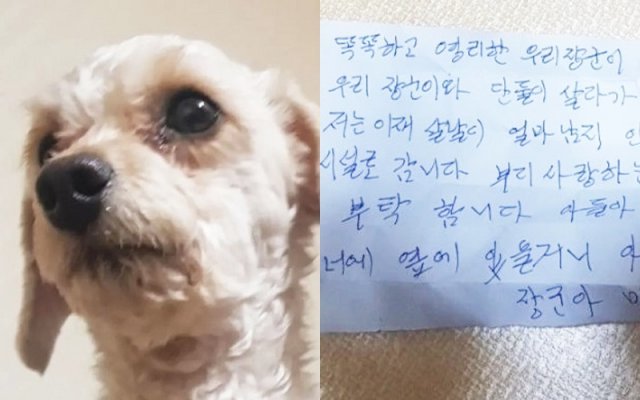 똑똑하고 영리한 우리장군이
우리 장군이와 단둘이 살다가
저는 이재 살날이 얼마 남직
시설로 갑니다 부디 사랑하는
부탁 합니다 아들아
너에 옆에 있을거니
장군아